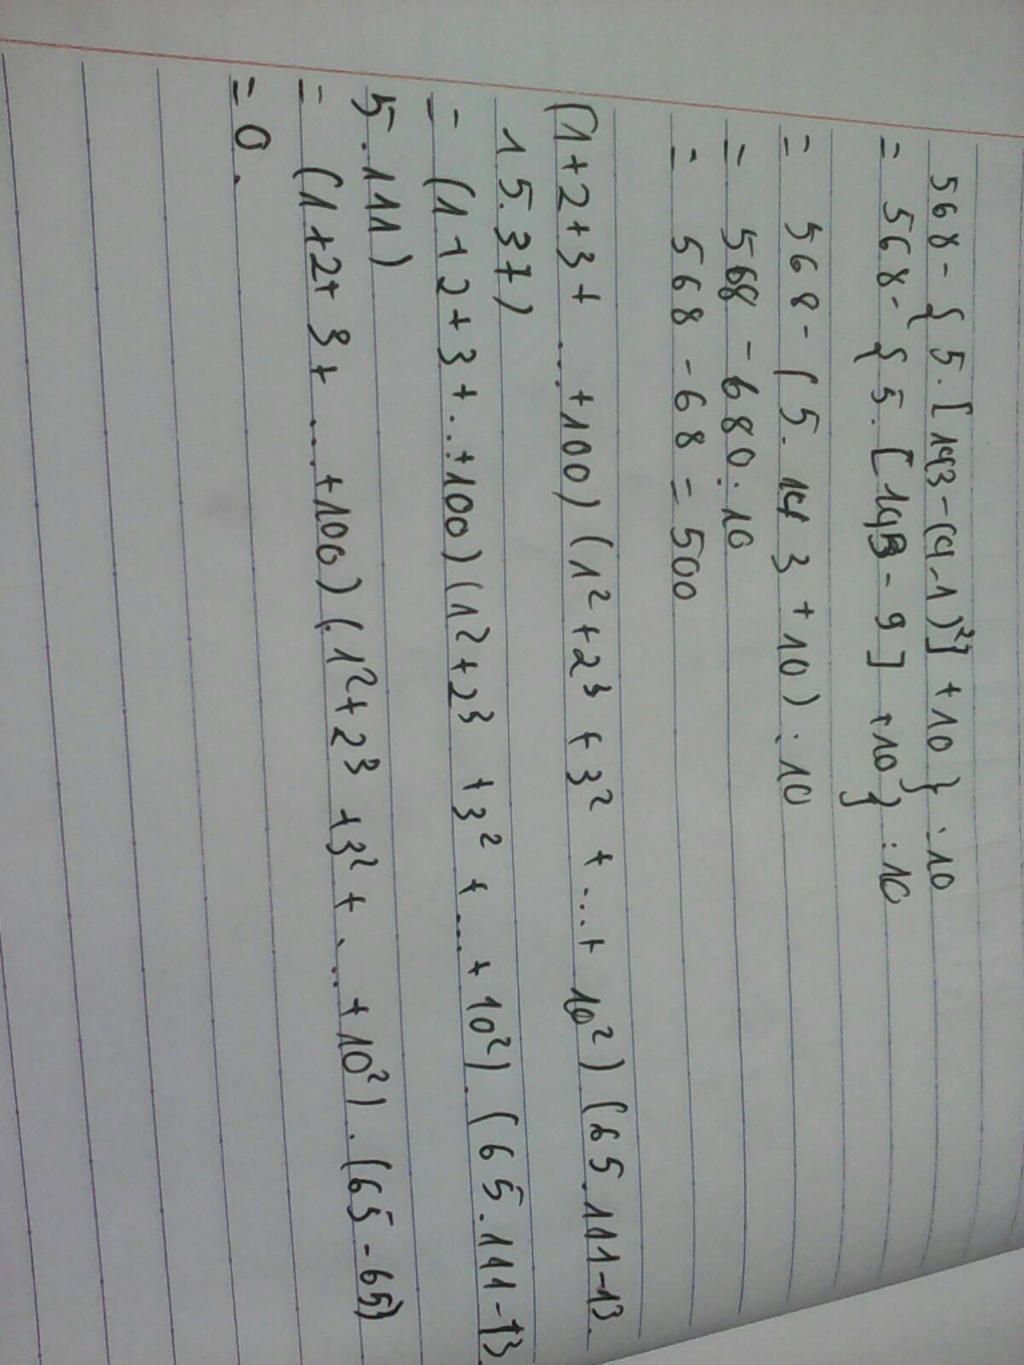 568 - { 5. [ 143 - (4 - 1)²] + 10 } : 10
= 568 - { 5. [ 143 - 9 ] + 10 } : 10
= 568 - ( 5. 143 + 10 ) : 10
= 568 - 680 : 10
= 568 - 68 = 500
(1 + 2 + 3 + ... + 100) (1² + 2³ + 3² + ... + 10²) (65 . 111 - 13.
15. 37)
= (1 + 2 + 3 + ... + 100) (1² + 2³ + 3² + ... + 10²) . (65 . 111 - 13
5 . 111)
= (1 + 2 + 3 + ... + 100) (1² + 2³ + 3² + ... + 10²) . (65 - 65)
= 0.